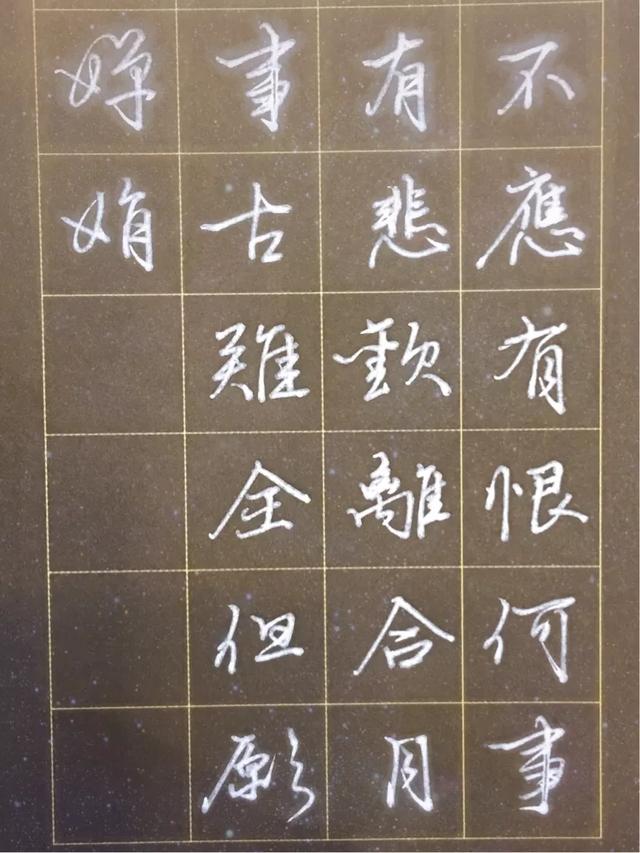 不應有恨何事
有悲歡離合月
事古難全但願
嬋娟